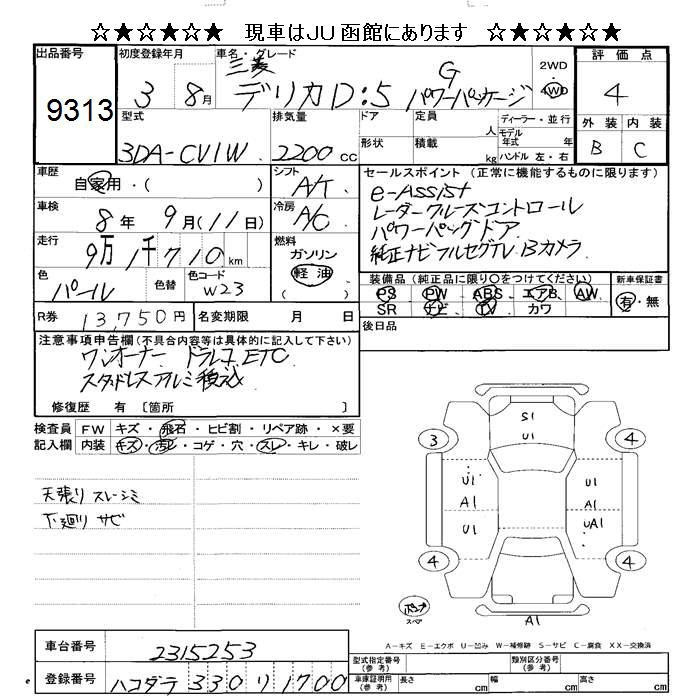 ☆★☆★☆★ 現車はJU函館にあります ☆★☆★☆★
出品番号 9313
初度登録年月 3年 8月
車名・グレード 三菱 デリカD:5 G パワーパッケージ
2WD・4WD
評価点 4
外装 B 内装 C
型式 3DA-CV1W
排気量 2200cc
ドア 形状
定員 人 積載 kg
ディーラー・並行
モデル年式 年
ハンドル 左・右
車歴 自家用・( )
シフト A/T
車検 8年 9月(11日)
冷房 A/C
走行 9万1千710km
燃料 ガソリン 軽油 ( )
色 パール 色替 色コード W23
セールスポイント(正常に機能するものに限ります)
e-Assist
レーダークルーズコントロール
パワーバックドア
純正ナビフルセグTV Bカメラ
装備品(純正品に限り○をつけてください)
PS PW ABS エアB AW
SR ナビ TV カワ
新車保証書 有・無
R券 13,750円
名変期限 月 日
後日品
注意事項申告欄(不具合内容等は具体的に記入して下さい)
ワンオーナー ドラレコ ETC
スタッドレスアルミ積込
修復歴 有 〔箇所 〕
検査員記入欄
FW キズ・飛石・ヒビ割・リペア跡・×要
内装 キズ・汚レ・コゲ・穴・スレ・キレ・破レ
天張り スレ シミ
下廻り サビ
S1
U1
3
4
U1
A1
U1
U1
A1
UA1
4
4
A1
スペア
A-キズ E-エクボ U-凹み W-補修跡 S-サビ C-腐食 XX-交換済
車台番号 2315253
登録番号 ハコダテ 330 リ 1700
型式指定番号(参考)
類別区分番号(参考)
車庫証明用(参考) 長さ cm 幅 cm 高さ cm